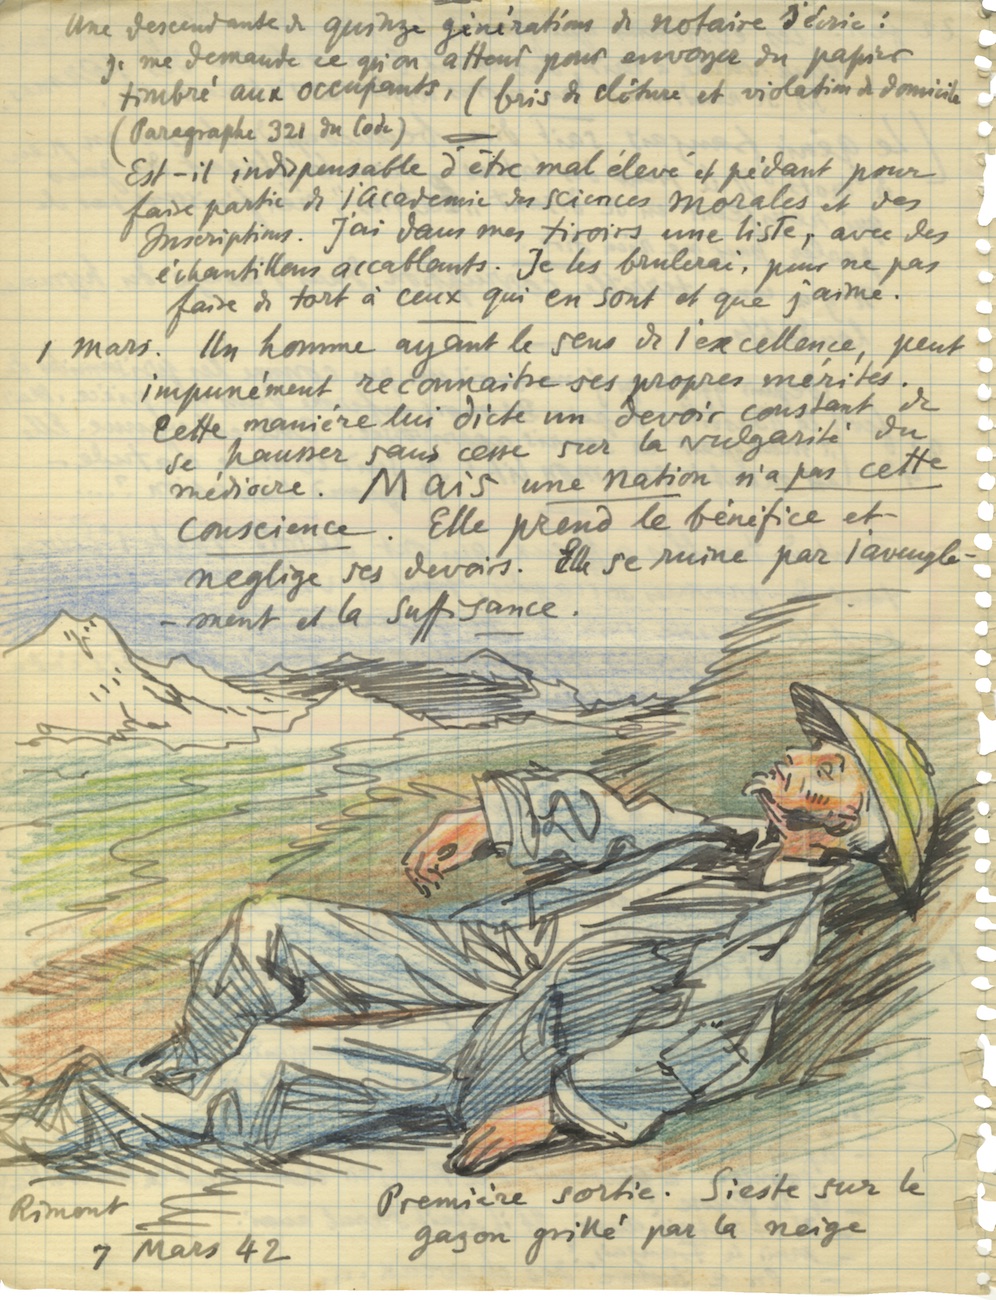 Une descendante de quinze générations de notaire s'écrie :
je me demande ce qu'on attend pour envoyer du papier
timbré aux occupants, (bris de clôture et violation de domicile
(Paragraphe 321 du Code)
Est-il indispensable d'être mal élevé et pédant pour
faire partie de l'Academie des Sciences Morales et des
Inscriptions. J'ai dans mes tiroirs une liste, avec des
échantillons accablants. Je les brulerai, pour ne pas
faire de tort à ceux qui en sont et que j'aime.
1 mars. Un homme ayant le sens de l'excellence, peut
impunément reconnaitre ses propres mérites.
Cette manière lui dicte un devoir constant de
se hausser sans cesse sur la vulgarité du
médiocre. Mais une nation n'a pas cette
conscience. Elle prend le bénéfice et
neglige ses devoirs. Elle se ruine par l'aveugle-
-ment et la suffisance.
Rimont
7 Mars 42
Première sortie. Sieste sur le
gazon grillé par la neige